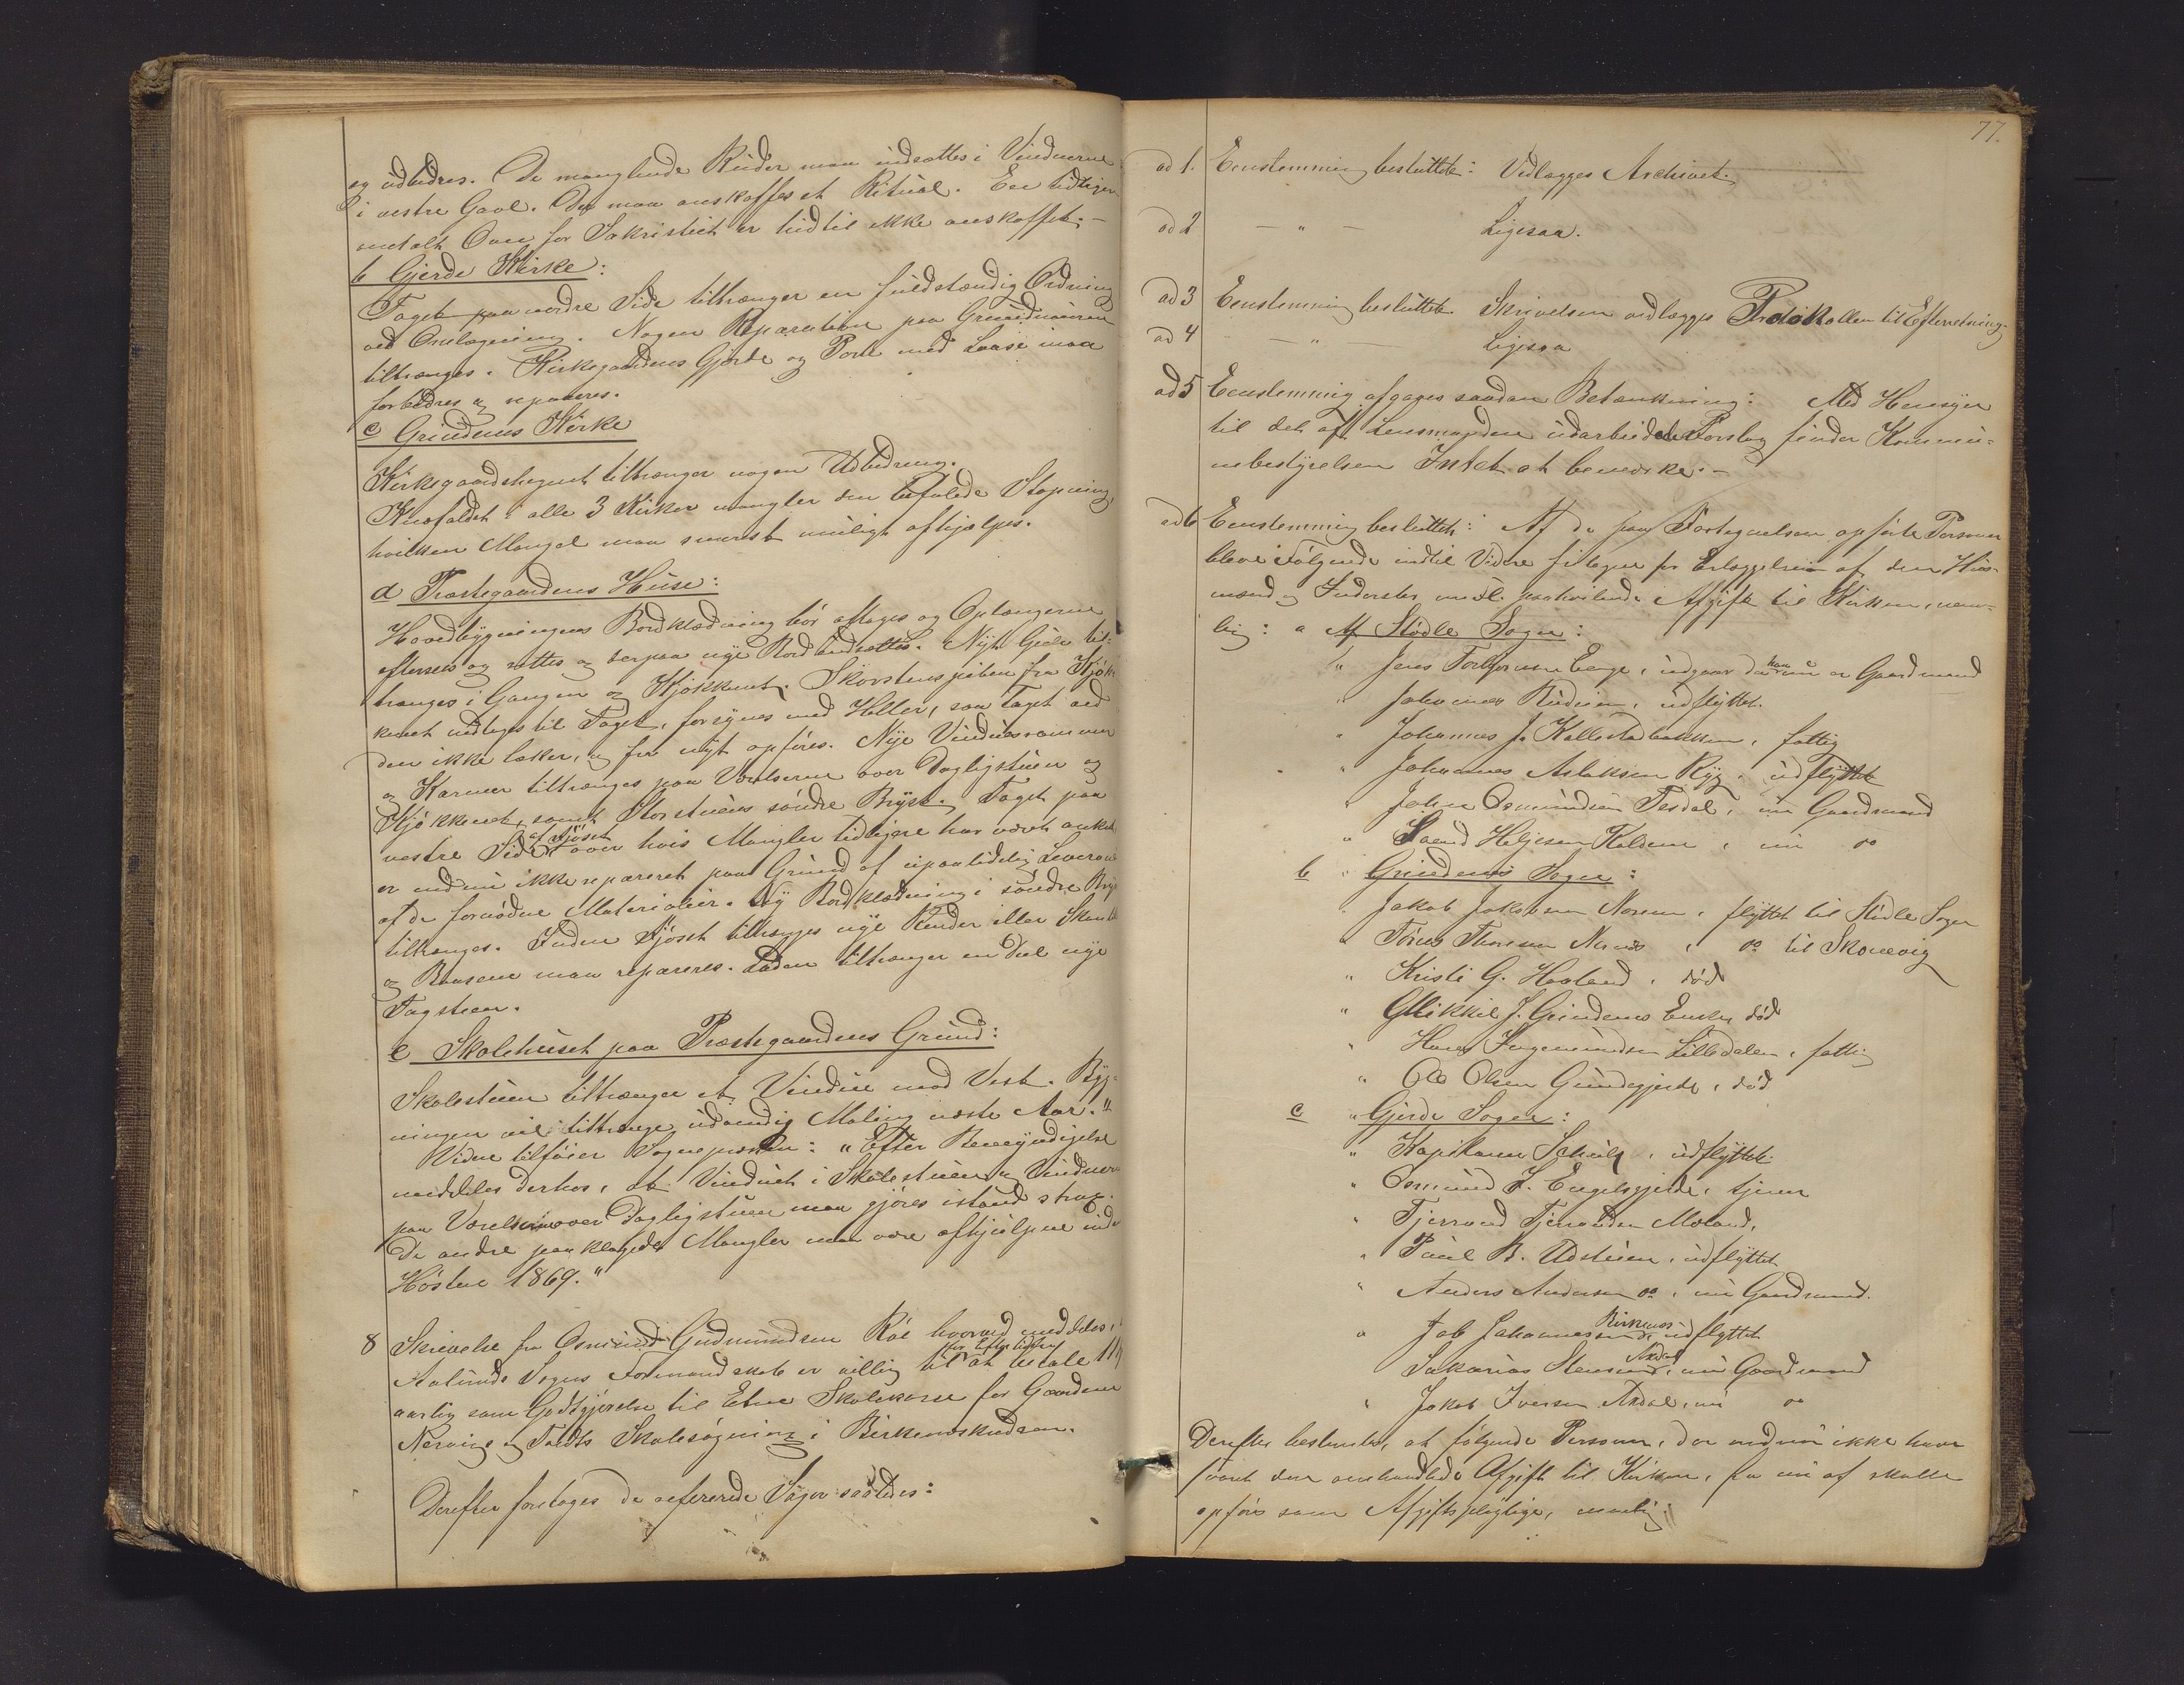 og udbedres. De manglende Ruder maa indsættes i Vinduerne
i vestre Gavl. Der maa anskaffes et Ritual. En tidligere
omtalt Ovn for Sakristiet er hidtil ikke anskaffet.-
b Gjerde Kirke:
Taget paa nordre Side tiltrænger en fuldstændig Ordning
ved Omlægning. Nogen Reparation paa Grundmuren
tiltrænges. Kirkegaardens Gjerde og Port med Laase maa
forbedres og repareres.
c Grindems Kirke
Kirkegaardshegnet tiltrænger nogen Udbedring.
Knæfaldet i alle 3 Kirker mangler den befalede Stopning,
hvilken Mangel maa snarest muligt afhjælpes.
d Præstegaardens Huse:
Hovedbygningens Bordklædning bør aftages og Optangerne
efterrees og rettes og derpaa nye Bord indsættes. Nyt Gulv til-
trænges i Gangen og Kjøkkenet. Skorstenspiben fra Kjøk-
kenet nedtages til Taget, forsynes med Heller, saa Taget ved
den ikke lækker, og fra nyt opføres. Nye Vinduesrammer
og Karmer tiltrænges paa Værelserne over Dagligstuen og
Kjøkkenet, samt Storstuens søndre Bryst. Taget paa
vestre Side af Fjøset over hvis Mangler tidligere har været anket
er endnu ikke repareret paa Grund af upaalidelig Leverance
af de fornødne Materialier. Ny Bordklædning i søndre Bryst
tiltrænges. Inden Fjøset tiltrænges nye Render eller
og Baasene maa repareres. Laden tiltrænger en Deel nye
Tagsteen.
e Skolehuset paa Præstegaardens Grund:
Skolestuen tiltrænger et Vindue mod Vest. Byg-
ningen vil tiltrænge udvendig Maling næste Aar."
Videre tilføier Sognepræsten: "Efter Bemyndigelse
meddeles derhos, at Vinduet i Skolestuen og Vinduerne
paa Værelserne over Dagligstuen maa gjøres istand strax.
De andre paaklagede Mangler maa være afhjulpne inden
Høsten 1869."
8 Skrivelse fra Osmund Gudmundsen Røe hvorved meddeles, at
Aalunds Sogns Formandskab er villig til for Eftertiden at betale
aarlig som Godtgjørelse til Etne Skolekasse for Gaardene
Nervigs og Tveits Skolesøgning i Birkenæskredsen.
Derefter foretoges de refererede Sager saaledes:
77.
ad 1. Eenstemmig besluttet: Vedlægges Archivet.
ad 2 — " — Ligesaa.
ad 3 Eenstemmig besluttet Skrivelsen vedlægges Protokollen til Efterretning.
ad 4 — " — Ligesaa
ad 5 Eenstemmig afgaves saadan Betænkning: Med Hensyn
til det af Lensmanden udarbeidede Forslag finder Kommu-
nebestyrelsen Intet at bemærke.-
ad 6 Eenstemmig besluttet: Af de paa Fortegnelsen opførte Personer
bleve Følgende indtil Videre fritagne for Erlæggelsen af den Huus-
mænd og Inderster m. Fl. paahvilende Afgift til Kirken, nem-
lig: a Af Stødle Sogn:
" Jens Torbjørnsen Enge, udgaar da han nu er Gaardmand
" Johannes Rudien, udflyttet.
" Johannes J. Kallestadbakken, fattig
" Johannes Aslaksen Ryg, udflyttet
" John Osmundsen Tesdal, nu Gaardmand
" Svend Helgesen Kaldeim, nu do
b " Grindems Sogn:
" Jakob Jakobsen Norem, flyttet til Stødle Sogn
" Tørres Thoresen Nernes, do til Skonevig
" Kristi G. Haaland, død
" Mikkel J. Grindems Enke, død
" Hans Ingemundsen Litledalen, fattig
" Ole Olsen Gundegjerde, død
c " Gjerde Sogn:
" Kapitaine Schulz, udflyttet.
" Osmund J. Engelsgjerde, tjener
" Tjerrand Tjerandsen Moland,
" Paul B. Udstuen, udflyttet
" Anders Andersen do, nu Gaardmand.
" Job Johannessen Birkenes, udflyttet
Sakarias Stensen Axdal, nu Gaardmand
" Jakob Iversen Axdal, nu do
Derefter bestemtes, at følgende Personer, der endnu ikke have
svaret den omhandlede Afgift til Kirken, fra nu af skulle
opføres som Afgiftspligtige, nemlig: